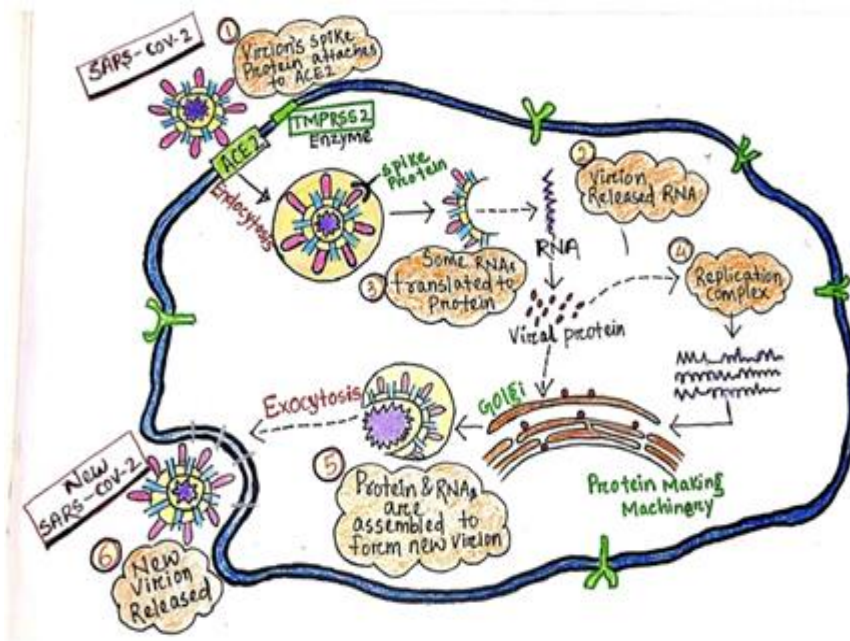 SARS-COV-2
1
Virion's spike
Protein attaches
to ACE2
ACE2
TMPRSS2
Enzyme
Endocytosis
Spike
Protein
2
Virion
Released RNA
RNA
3
Some RNAs
translated to
Protein
Viral protein
4
Replication
Complex
GOLGi
Protein Making
Machinery
Exocytosis
5
Protein & RNAs
are
assembled to
form new Virion
New
SARS-COV-2
6
New
Virion
Released